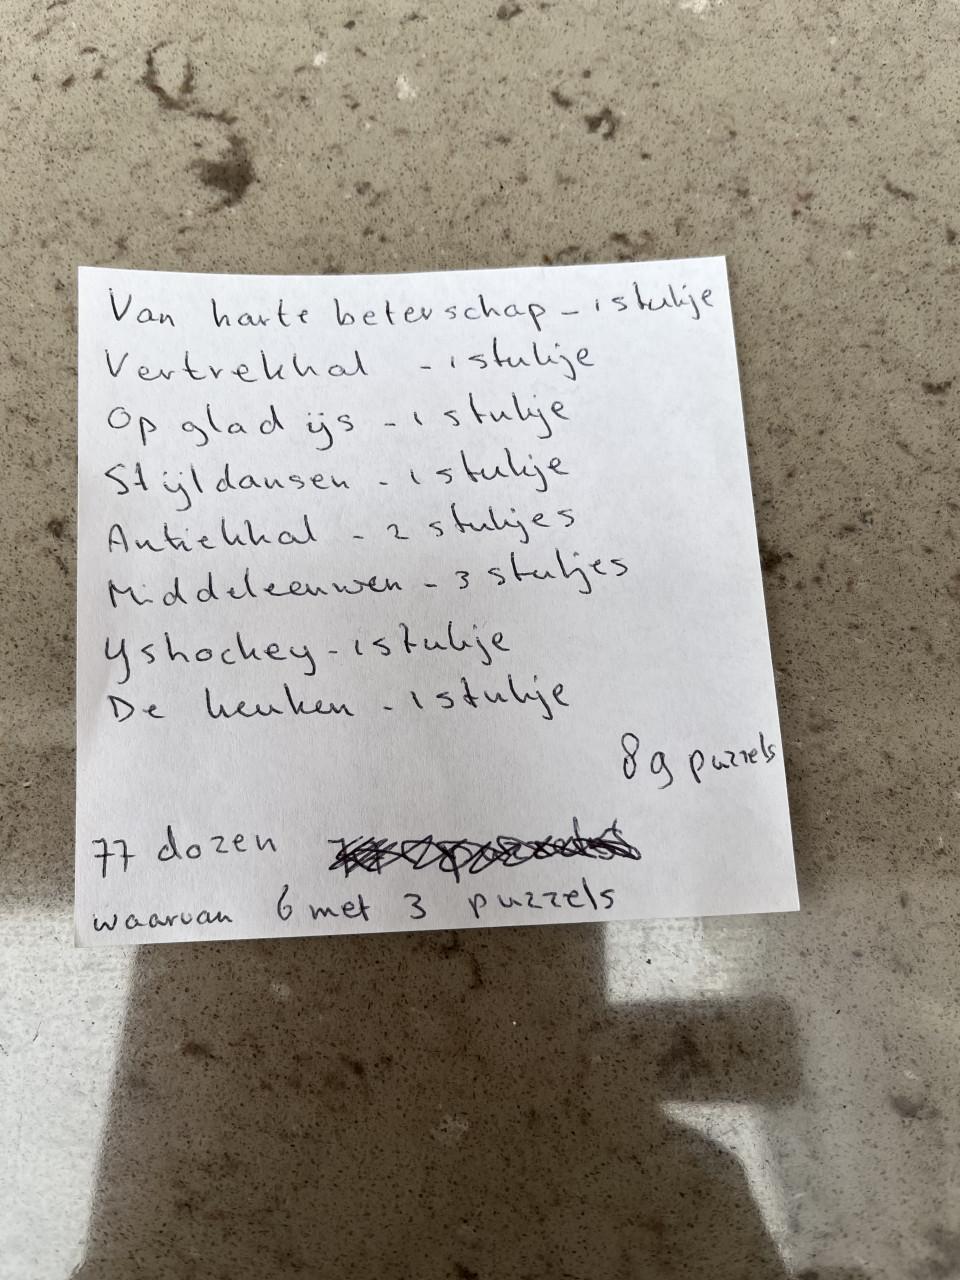 Van harte beterschap - 1 stukje
Vertrekhal - 1 stukje
Op glad ijs - 1 stukje
Stijldansen - 1 stukje
Antiekhal - 2 stukjes
Middeleeuwen - 3 stukjes
Yshockey - 1 stukje
De keuken - 1 stukje
89 puzzels
77 dozen
waarvan 6 met 3 puzzels